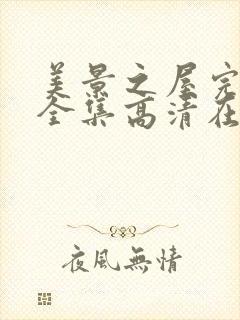 美景之屋完
全集高清在
夜風無情